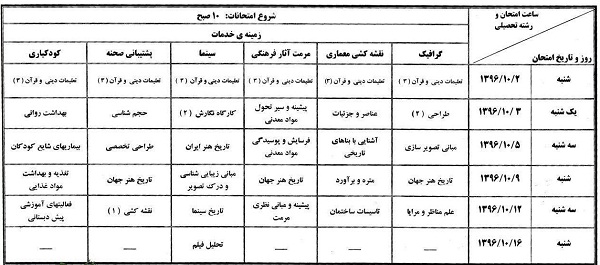 ساعت امتحان و رشته تحصیلی
شروع امتحانات: ۱۰ صبح
زمینه ی خدمات
روز و تاریخ امتحان
گرافیک
نقشه کشی معماری
مرمت آثار فرهنگی
سینما
پشتیبانی صحنه
کودکیاری
شنبه
۱۳۹۶/۱۰/۲
تعلیمات دینی و قرآن (۳)
تعلیمات دینی و قرآن (۳)
تعلیمات دینی و قرآن (۳)
تعلیمات دینی و قرآن (۳)
تعلیمات دینی و قرآن (۳)
تعلیمات دینی و قرآن (۳)
یک شنبه
۱۳۹۶/۱۰/۳
طراحی (۲)
عناصر و جزئیات
پیشینه و سیر تحول مواد معدنی
کارگاه نگارش (۲)
حجم شناسی
بهداشت روانی
سه شنبه
۱۳۹۶/۱۰/۵
مبانی تصویر سازی
آشنایی با بناهای تاریخی
فرسایش و پوسیدگی مواد معدنی
تاریخ هنر ایران
طراحی تخصصی
بیماریهای شایع کودکان
شنبه
۱۳۹۶/۱۰/۹
تاریخ هنر جهان
متره و برآورد
تاریخ هنر جهان
مبانی زیبایی شناسی و درک تصویر
تاریخ هنر جهان
تغذیه و بهداشت مواد غذایی
سه شنبه
۱۳۹۶/۱۰/۱۲
علم مناظر و مرایا
تاسیسات ساختمان
پیشینه و مبانی نظری مرمت
تاریخ سینما
نقشه کشی (۱)
فعالیتهای آموزشی پیش دبستانی
شنبه
۱۳۹۶/۱۰/۱۶
تحلیل فیلم